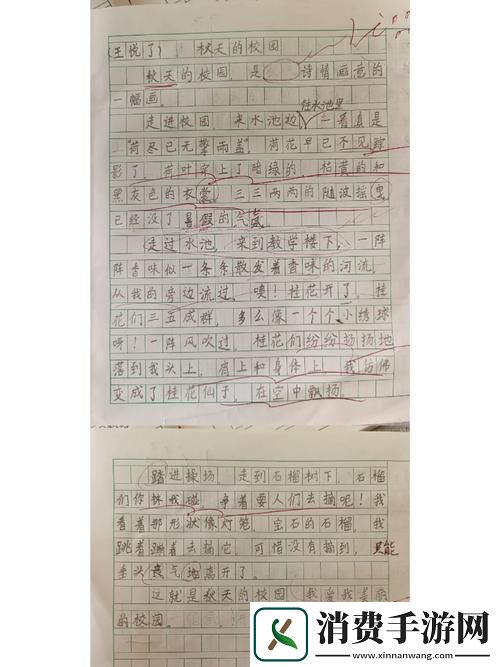 (王悦了) 秋天的校园
秋天的校园，是诗情画意的
一幅画。
往水池里
走进校园，来水池边，一看真是
“荷尽已无擎雨盖”，荷花早已不见踪
影了，荷叶穿上了暗绿的，枯黄的和
黑灰色的衣裳，三三两两的随波摇曳，
已经没了暑假的气盛。
走过水池，来到教学楼下，一阵
阵香味似一条条散发着香味的河流，
从我的旁边流过。噢！桂花开了。桂
花们三五成群，多么像一个个小绣球
呀！一阵风吹过，桂花们纷纷扬扬地
落到我头上，肩上和身体上。我仿佛
变成了桂花仙子，在空中飘扬。
踏进操场，走到石榴树下，石榴
们你挤我碰，争着要人们去摘呢！我
看着那形状像灯笼，宝石的石榴，我
跳着蹦着去摘它，可惜没有摘到，只能
垂头丧气地离开了。
这就是秋天的校园，我爱我美丽
的校园。
消费手游网
www.xinnanwang.com